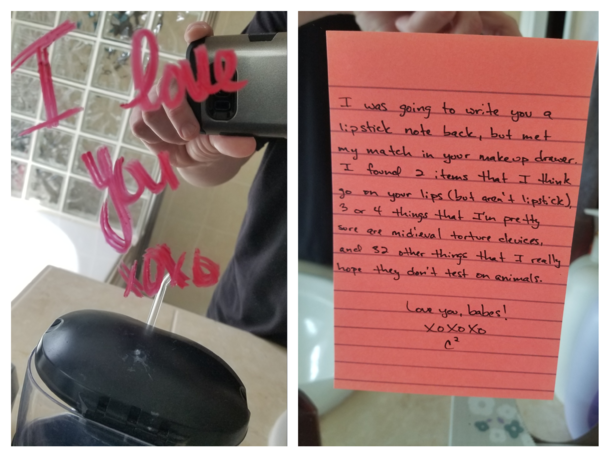 I love
you
XOXO
I was going to write you a
lipstick note back, but met
my match in your makeup drawer.
I found 2 items that I think
go on your lips (but aren't lipstick),
3 or 4 things that I'm pretty
sure are midieval torture devices,
and 82 other things that I really
hope they don't test on animals.
Love you, babes!
XOXOXO
C²